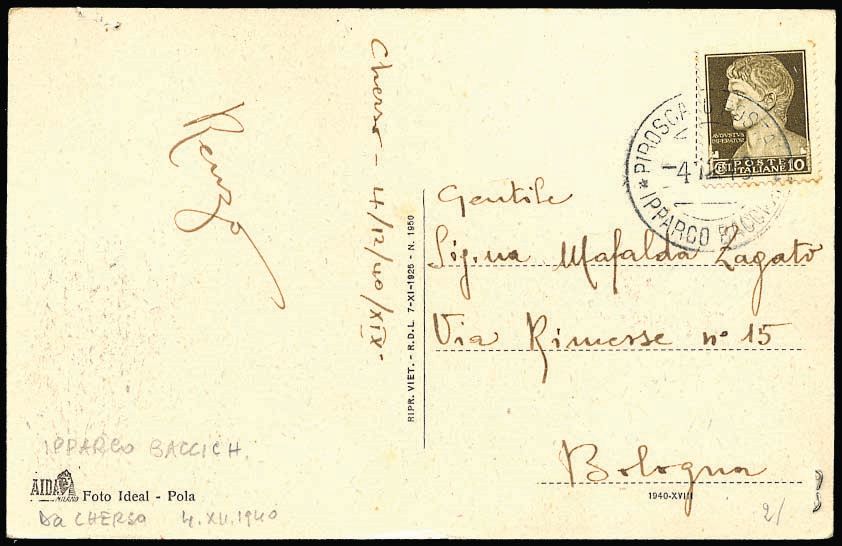 Cherso - 4/12/40/XIX.
Renzo
PIROSCAFO
IPPARCO BACCICH
-4 12
AVGVSTVS
IMPERATOR
CMI. POSTE
ITALIANE 10
Gentile
Sig.na Mafalda Zagato
Via Rimesse n° 15
Bologna
RIPR. VIET. - R.D.L. 7-XI-1925 - N. 1950
IPPARCO BACCICH.
AIDA
MILANO
Foto Ideal - Pola
Da CHERSO 4.XII.1940
1940-XVIII
2/